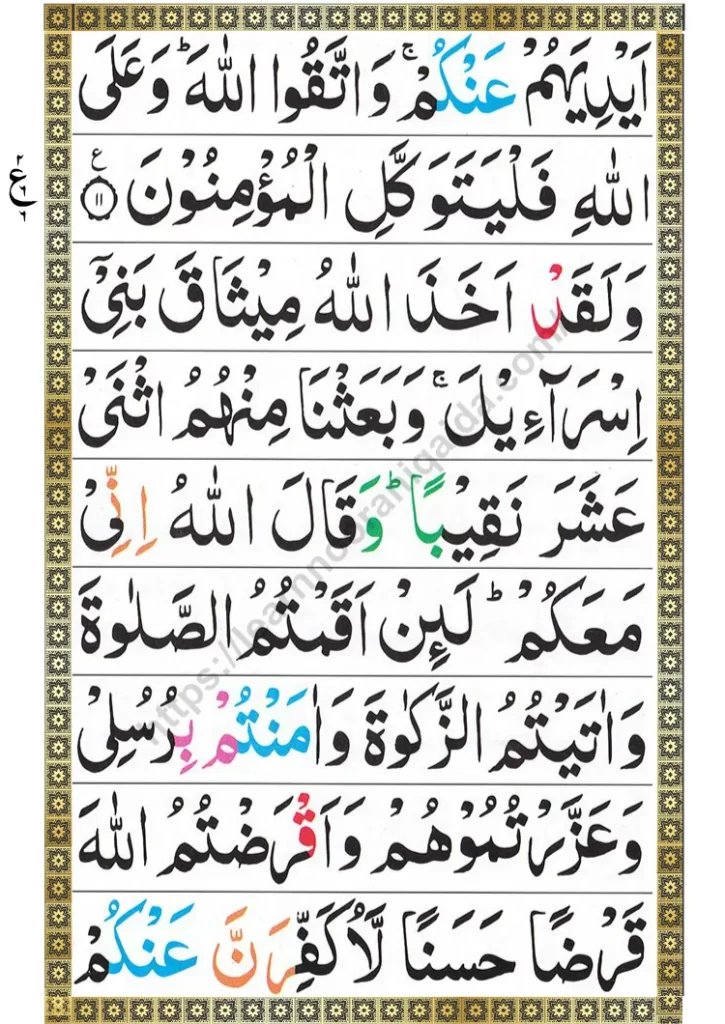 اَيْدِيَهُمْ عَنْكُمْ ۚ وَاتَّقُوا اللّٰهَ ؕ وَعَلَى
اللّٰهِ فَلْيَتَوَكَّلِ الْمُؤْمِنُوْنَ ۧ ﴿۱۱﴾
وَلَقَدْ اَخَذَ اللّٰهُ مِيْثَاقَ بَنِيْۤ
اِسْرَآءِيْلَ ۚ وَبَعَثْنَا مِنْهُمُ اثْنَيْ
عَشَرَ نَقِيْبًا ؕ وَقَالَ اللّٰهُ اِنِّيْ
مَعَكُمْ ؕ لَىِٕنْ اَقَمْتُمُ الصَّلٰوةَ
وَاٰتَيْتُمُ الزَّكٰوةَ وَاٰمَنْتُمْ بِرُسُلِيْ
وَعَزَّرْتُمُوْهُمْ وَاَقْرَضْتُمُ اللّٰهَ
قَرْضًا حَسَنًا لَّاُكَفِّرَنَّ عَنْكُمْ
https://learnnooraniqaida.com/